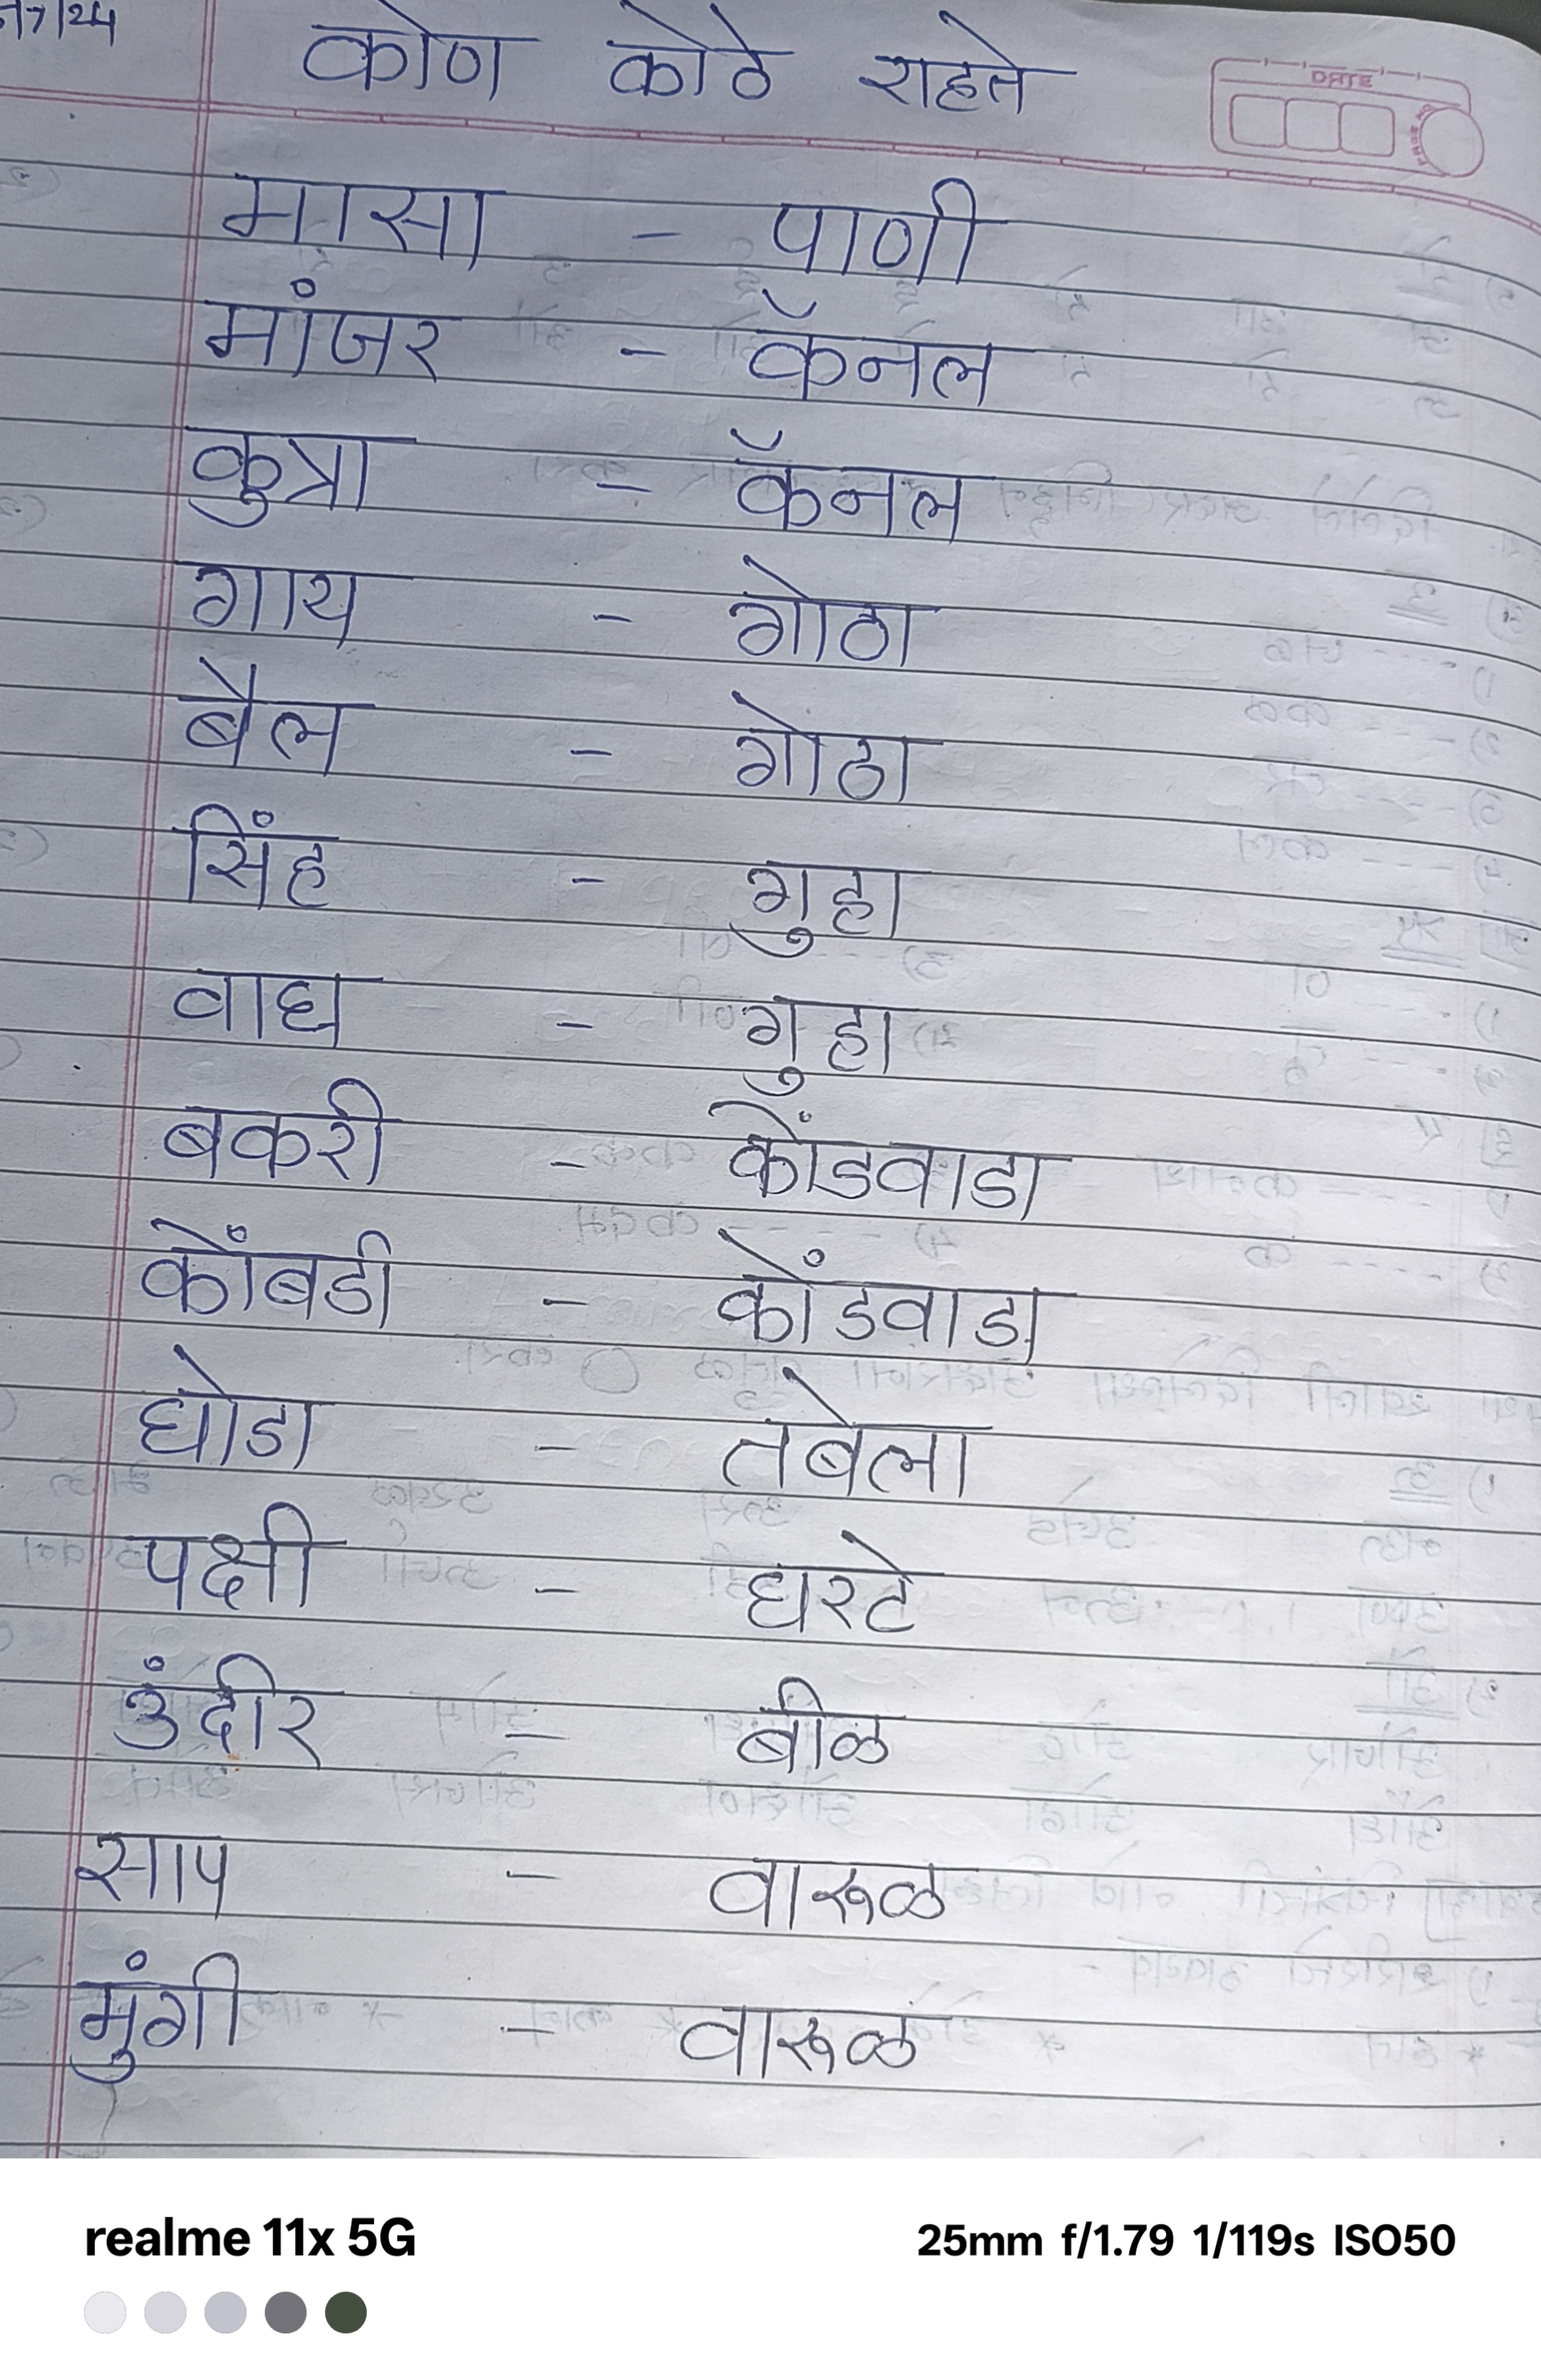 7/24
कोण कोठे राहते
DATE
मासा - पाणी
मांजर - कॅनल
कुत्रा - कॅनल
गाय - गोठा
बैल - गोठा
सिंह - गुहा
वाघ - गुहा
बकरी - कोंडवाडा
कोंबडी - कोंडवाडा
घोडा - तबेला
पक्षी - घरटे
उंदीर - बीळ
साप - वारूळ
मुंगी - वारूळ
realme 11x 5G
25mm f/1.79 1/119s ISO50